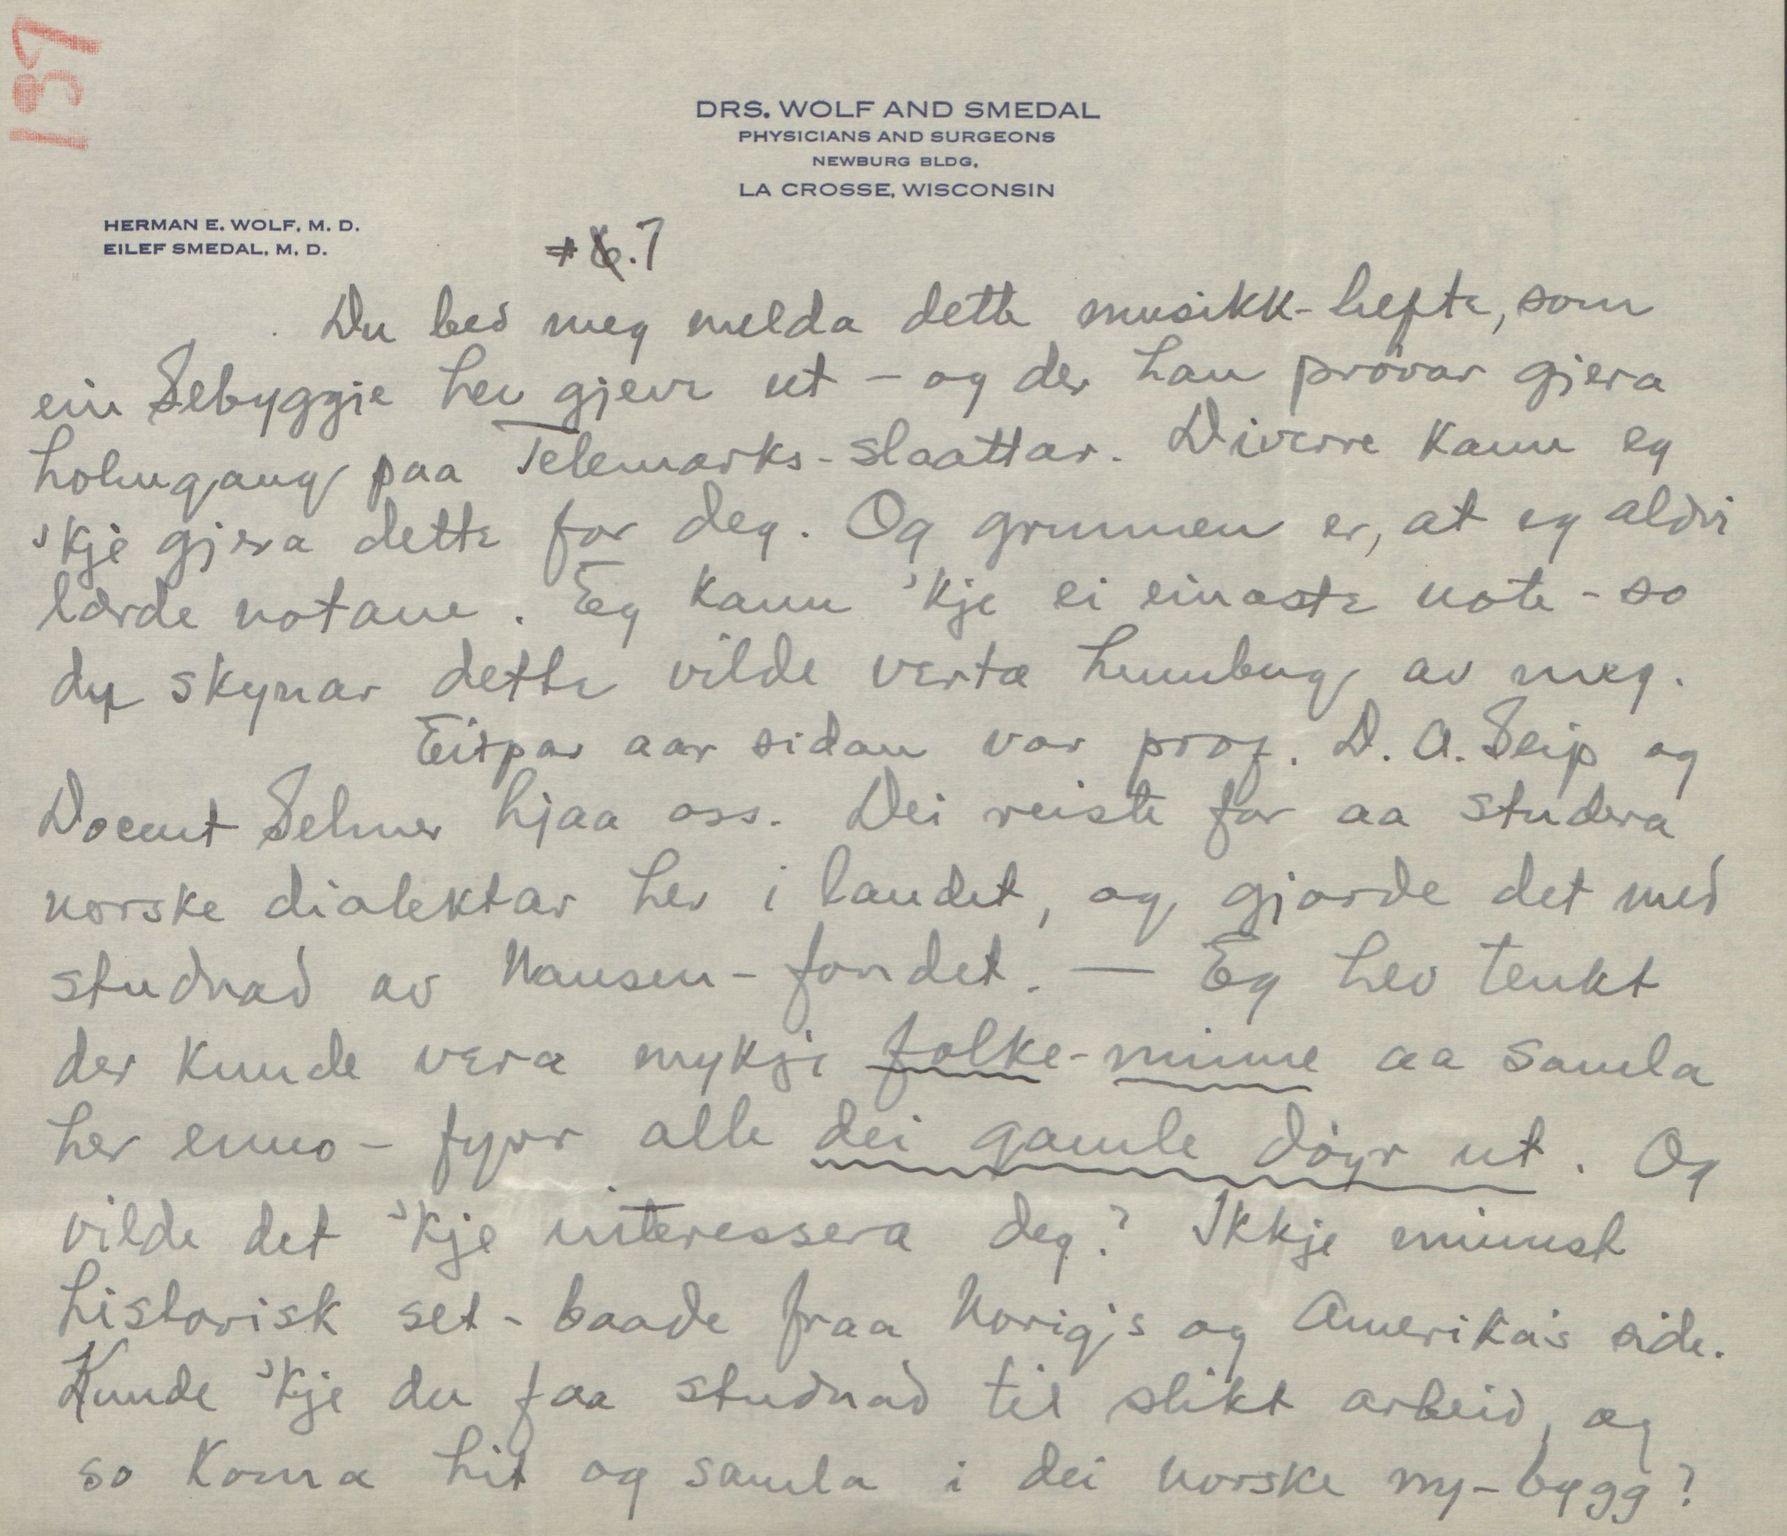 137
DRS. WOLF AND SMEDAL
PHYSICIANS AND SURGEONS
NEWBURG BLDG.
LA CROSSE, WISCONSIN
HERMAN E. WOLF, M. D.
EILEF SMEDAL, M. D.
#6.7
Du bed meg melda dette musikk-hefte, som
ein Sebyggje hev gjeve ut – og der han prövar gjera
holmgang paa Telemarks-slaattar. Diverre kann eg
'kje gjera dette for deg. Og grunnen er, at eg aldri
lærde notane. Eg kann 'kje ei einaste note – so
du skynar dette vilde verta humbug av meg.
Eit par aar sidan var prof. D. A. Seip og
Docent Selmer hjaa oss. Dei reiste for aa studera
norske dialektar her i landet, og gjorde det med
studnad av Nansen-fondet. — Eg hev tenkt
der kunde vera mykje folke-minne aa samla
her enno – fyrr alle dei gamle döyr ut. Og
vilde det 'kje interessera deg? Ikkje minnst
historisk set – baade fraa Norigs og Amerika's side.
Kunde 'kje du faa studnad til slikt arbeid, og
so koma hit og samla i dei norske ny-bygg?